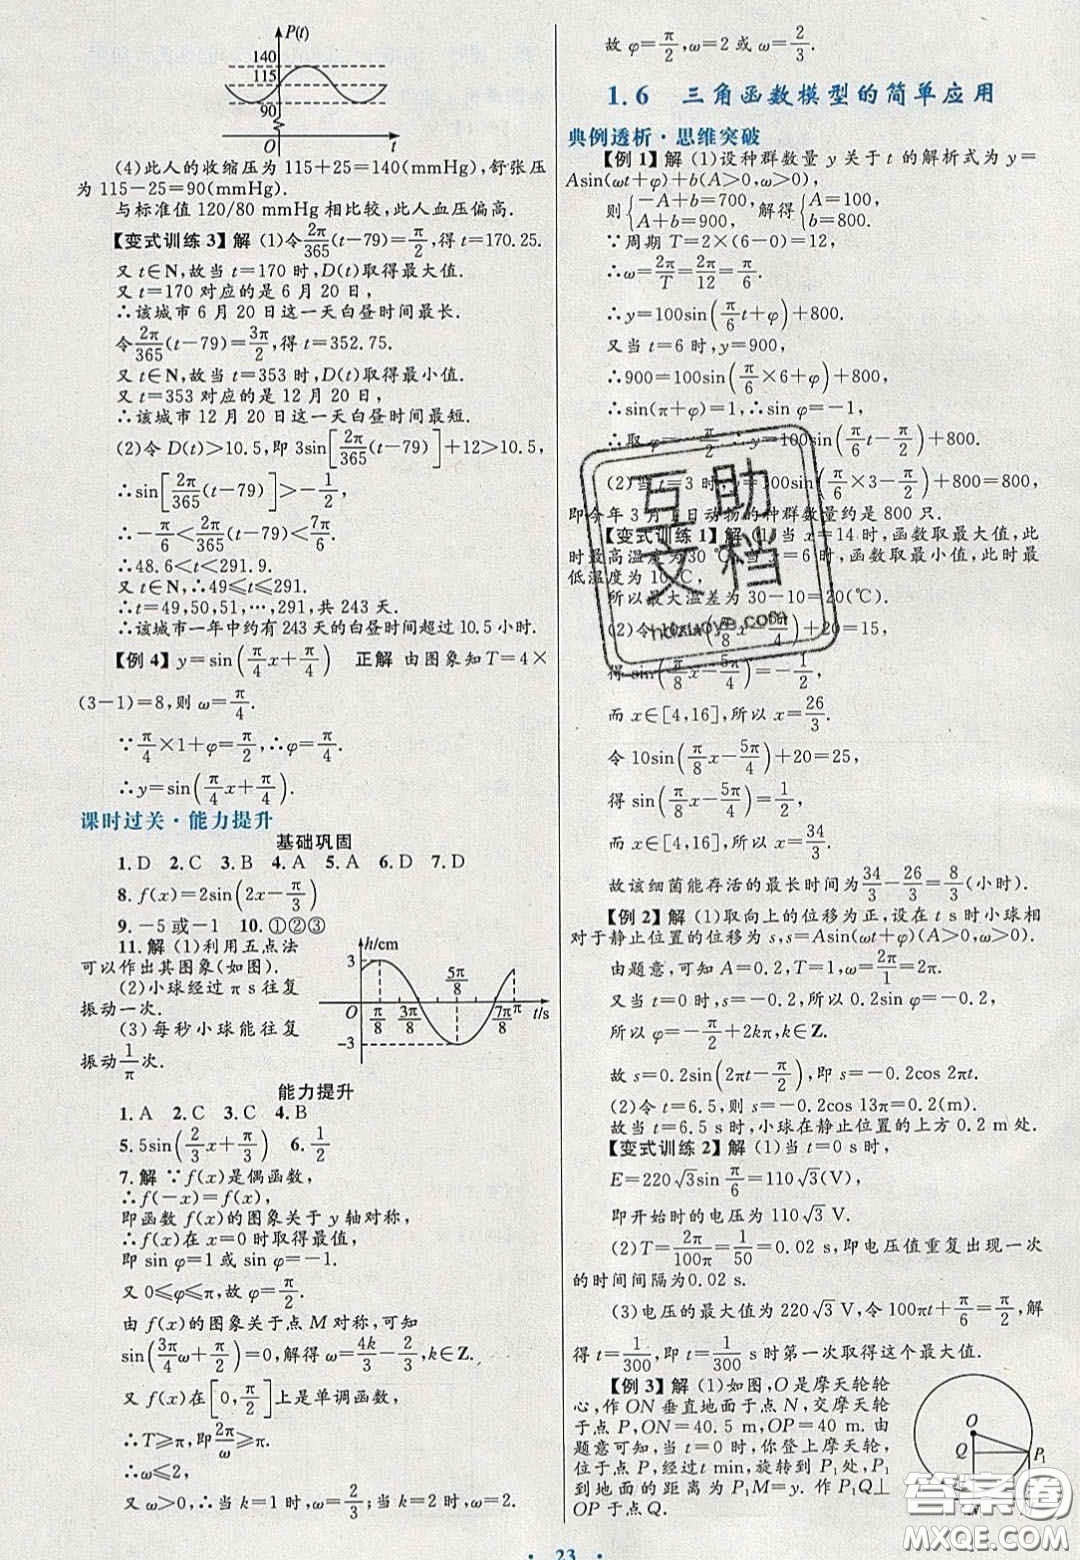 P(t)
140
115
90
O
t
(4)此人的收缩压为 115+25=140(mmHg),舒张压
为 115-25=90(mmHg).
与标准值 120/80 mmHg 相比较,此人血压偏高.
【变式训练 3】解 (1)令2π/365(t-79)=π/2,得 t=170.25.
又 t∈N,故当 t=170 时,D(t)取得最大值.
又 t=170 对应的是 6 月 20 日,
∴该城市 6 月 20 日这一天白昼时间最长.
令2π/365(t-79)=3π/2,得 t=352.75.
又 t∈N,故当 t=353 时,D(t)取得最小值.
又 t=353 对应的是 12 月 20 日,
∴该城市 12 月 20 日这一天白昼时间最短.
(2)令 D(t)>10.5,即 3sin[2π/365(t-79)]+12>10.5,
∴sin[2π/365(t-79)]>-1/2,
∴-π/6<2π/365(t-79)<7π/6.
∴48.6<t<291.9.
又 t∈N,∴49≤t≤291.
∴t=49,50,51,…,291,共 243 天.
∴该城市一年中约有 243 天的白昼时间超过 10.5 小时.
【例 4】y=sin(π/4x+π/4) 正解 由图象知 T=4×
(3-1)=8,则 ω=π/4.
∵π/4×1+φ=π/2,∴φ=π/4.
∴y=sin(π/4x+π/4).
课时过关·能力提升
基础巩固
1.D 2.C 3.B 4.A 5.A 6.D 7.D
8.f(x)=2sin(2x-π/3)
9.-5或-1 10.①②③
11.解 (1)利用五点法
可以作出其图象(如图).
(2)小球经过 π s 往复
振动一次.
(3)每秒小球能往复
振动1/π次.
h/cm
3
O
-3
π/8
3π/8
5π/8
7π/8
π
t/s
能力提升
1.A 2.C 3.C 4.B
5.5sin(2/3x+π/3) 6.1/2
7.解 ∵f(x)是偶函数,
∴f(-x)=f(x),
即函数 f(x)的图象关于 y 轴对称,
∴f(x)在 x=0时取得最值.
即 sin φ=1 或 sin φ=-1.
又 0≤φ≤π,故 φ=π/2.
由 f(x)的图象关于点 M 对称,可知
sin(3π/4ω+π/2)=0,解得 ω=4k/3-2/3,k∈Z.
又 f(x)在[0,π/2]上是单调函数,
∴T≥π,即2π/ω≥π.
∴ω≤2,
又 ω>0,∴当 k=1时,ω=2/3;当 k=2时,ω=2.
故 φ=π/2,ω=2 或 ω=2/3.
1.6 三角函数模型的简单应用
典例透析·思维突破
【例 1】解 (1)设种群数量 y 关于 t 的解析式为 y=
Asin(ωt+φ)+b(A>0,ω>0),
则{-A+b=700, A+b=900, 解得{A=100, b=800.
∵周期 T=2×(6-0)=12,
∴ω=2π/T=2π/12=π/6.
∴y=100sin(π/6t+φ)+800.
又当 t=6 时,y=900,
∴900=100sin(π/6×6+φ)+800,
∴sin(π+φ)=1,∴sin φ=-1,
∴取 φ=-π/2,∴y=100sin(π/6t-π/2)+800.
(2)当 t=3 时,y=100sin(π/6×3-π/2)+800=800,
即今年 3 月 1 日动物的种群数量约是 800 只.
【变式训练 1】解 (1)当 x=14 时,函数取最大值,此
时最高温度为 30 ℃,当 x=6 时,函数取最小值,此时最
低温度为 10 ℃,
所以最大温差为 30-10=20(℃).
(2)令 10sin(π/8x-5π/4)+20=15,
得 sin(π/8x-5π/4)=-1/2,
而 x∈[4,16],所以 x=26/3.
令 10sin(π/8x-5π/4)+20=25,
得 sin(π/8x-5π/4)=1/2,
而 x∈[4,16],所以 x=34/3.
故该细菌能存活的最长时间为34/3-26/3=8/3(小时).
【例 2】解 (1)取向上的位移为正,设在 t s 时小球相
对于静止位置的位移为 s,s=Asin(ωt+φ)(A>0,ω>0).
由题意,可知 A=0.2,T=1,ω=2π/1=2π.
又当 t=0 时,s=-0.2,所以 0.2sin φ=-0.2,
所以 φ=-π/2+2kπ,k∈Z.
故 s=0.2sin(2πt-π/2)=-0.2cos 2πt.
(2)令 t=6.5,则 s=-0.2cos 13π=0.2(m).
故当 t=6.5 s 时,小球在静止位置的上方 0.2 m 处.
【变式训练 2】解 (1)当 t=0 时,
E=220√3sin π/6=110√3(V),
即开始时的电压为 110√3 V.
(2)T=2π/100π=1/50=0.02 s,即电压值重复出现一次
的时间间隔为0.02 s.
(3)电压的最大值为 220√3 V,令 100πt+π/6=π/2,解
得 t=1/300,即 t=1/300 s 时第一次取得这个最大值.
【例 3】解 (1)如图,O 是摩天轮轮
心,作 ON 垂直地面于点 N,交摩天轮
于点 P,ON=40.5 m,OP=40 m. 由
题意可知,当 t=0 时,你登上摩天轮
点 P,经过 t min,旋转到 P₁处,P₁到
地面的距离为 P₁M=y. 作 P₁Q⊥
OP 于点 Q.
O
Q
P₁
N
互助
文档
答案圈
MXQE.COM
· 23 ·